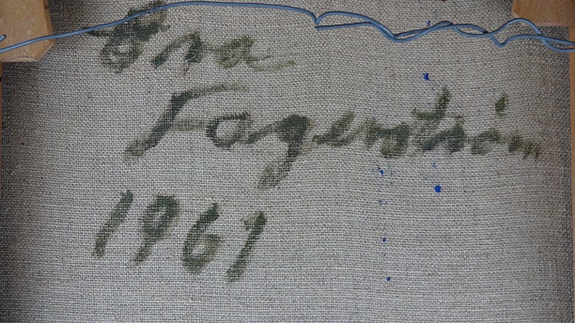 Eva
Fagerström
1961